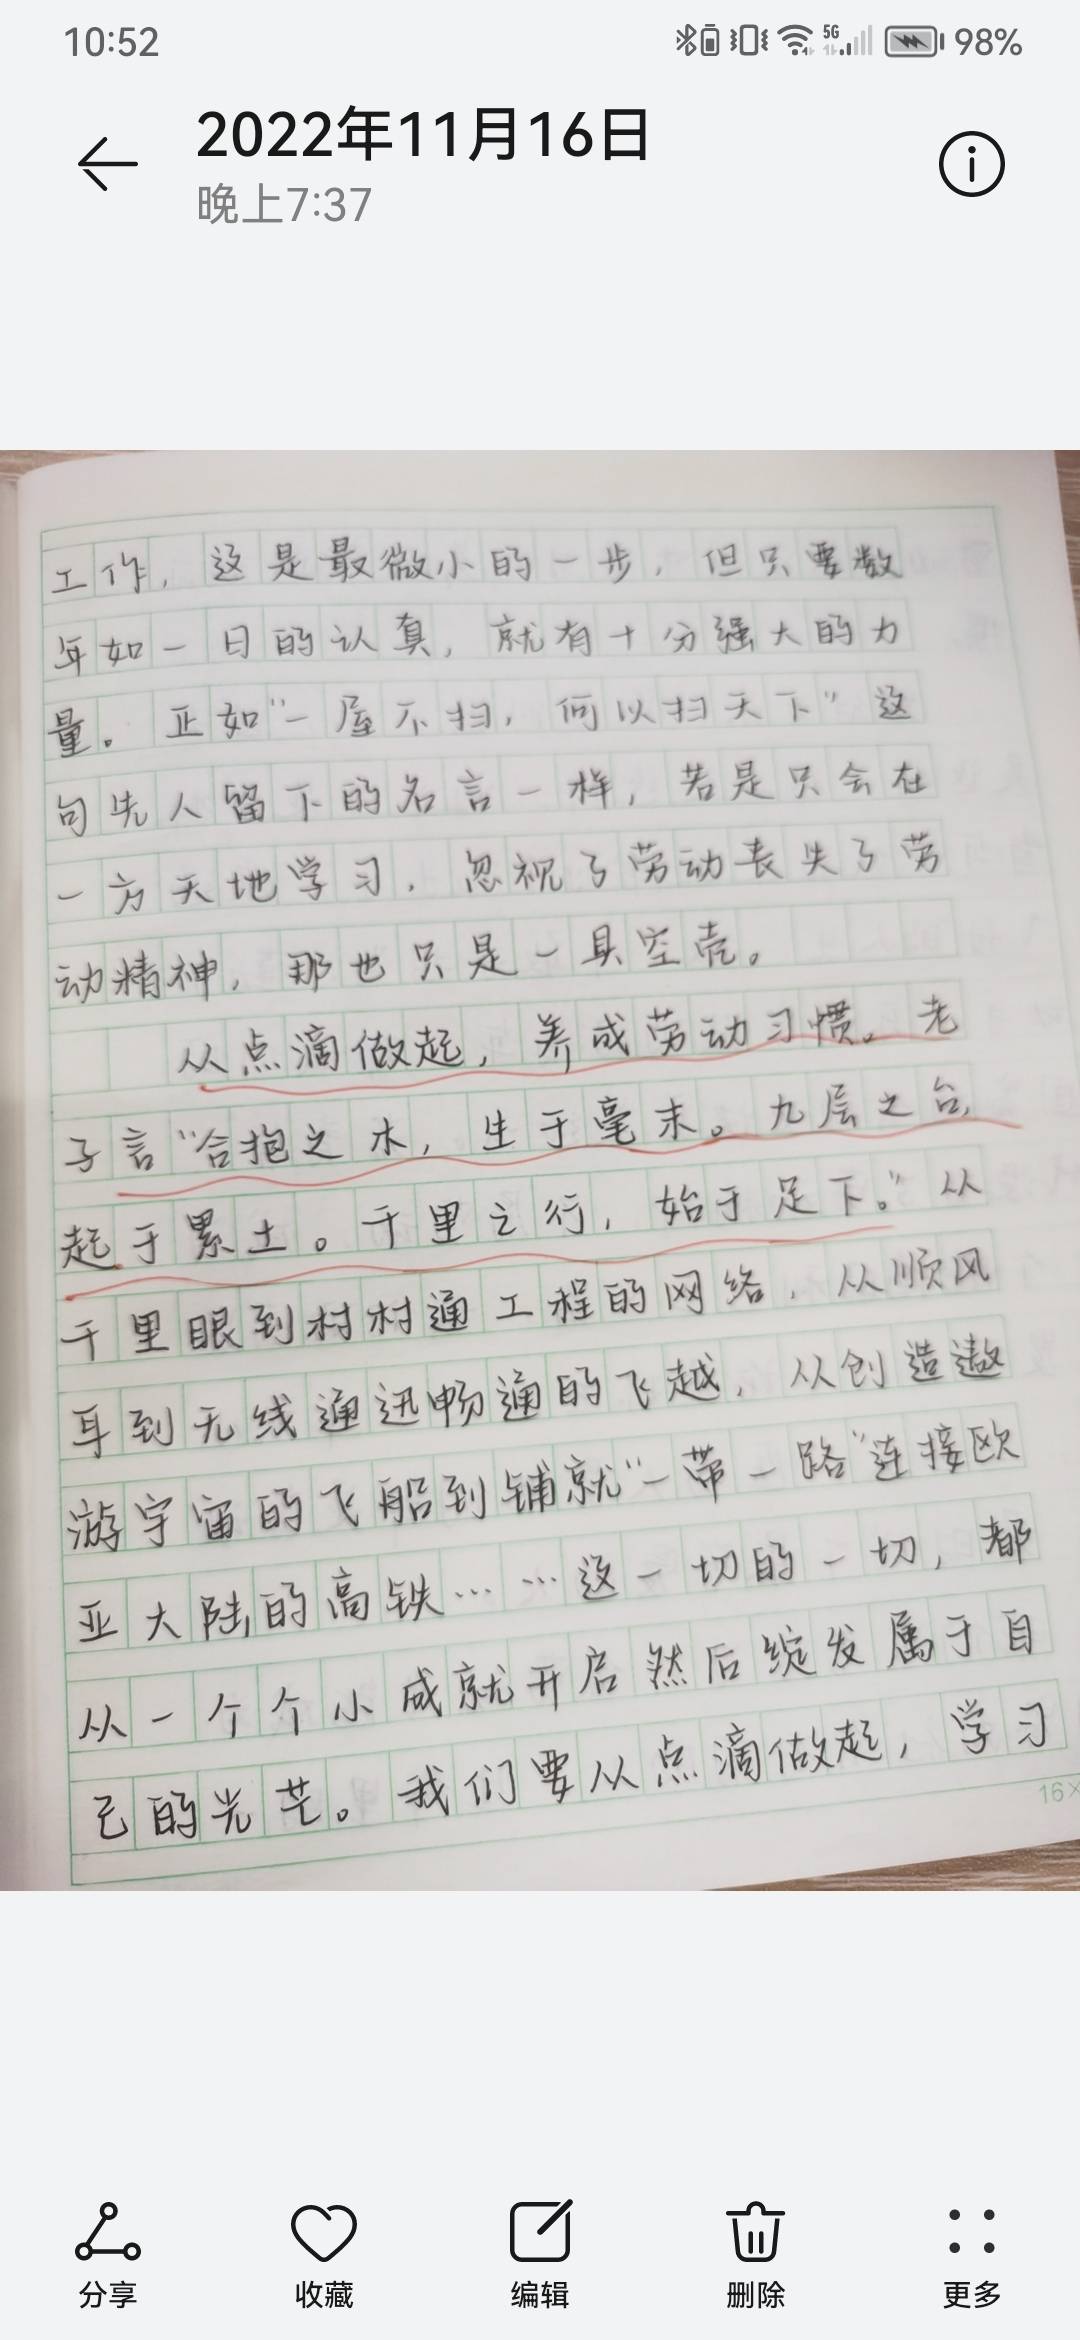 10:52
5G
98%
2022年11月16日
晚上7:37
工作，这是最微小的一步，但只要数
年如一日的认真，就有十分强大的力
量。正如“一屋不扫，何以扫天下”这
句先人留下的名言一样，若是只会在
一方天地学习，忽视了劳动丧失了劳
动精神，那也只是一具空壳。
从点滴做起，养成劳动习惯。老
子言“合抱之木，生于毫末。九层之台，
起于累土。千里之行，始于足下。”从
千里眼到村村通工程的网络，从顺风
耳到无线通迅畅通的飞越，从创造遨
游宇宙的飞船到铺就“一带一路”连接欧
亚大陆的高铁……这一切的一切，都
从一个个小成就开启然后绽发属于自
己的光芒。我们要从点滴做起，学习
16×
分享
收藏
编辑
删除
更多